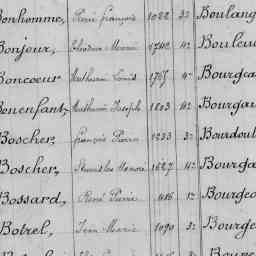 Bonhomme, René françois 1022 3e Boulang
Bonjour, Théodore Marie 1742 4e Bouleu
Boncoeur Mathurin Louis 1757 4e Bourgea
Bonenfant, Mathurin Joseph 1803 4e Bourgau
Boscher, françois Pierre 1233 3e Bourdoul
Boscher, Stanislas Honoré 1627 4e Bourga
Bossard, René Pierre 416 1e Bourgeo
Botrel, Jean Marie 1090 3e Bourge